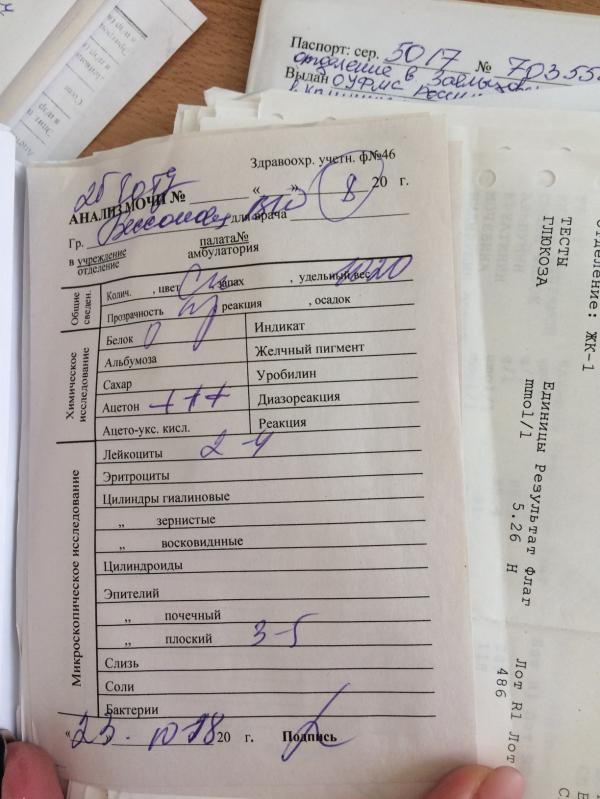 Паспорт: сер. 5017 № 70355
отделение в
Выдан ОУФМС России
Здравоохр. учетн. ф№46
АНАЛИЗ МОЧИ № « » 8 20 г.
Гр. для врача
в учреждение палата№
отделение амбулатория
Общие сведен.
Колич. , цвет запах , удельный вес 1020
Прозрачность реакция , осадок
Химическое исследование
Белок 0 Индикат
Альбумоза Желчный пигмент
Сахар Уробилин
Ацетон +++ Диазореакция
Ацето-укс. кисл. Реакция
Микроскопическое исследование
Лейкоциты 2-4
Эритроциты
Цилиндры гиалиновые
„ зернистые
„ восковиднные
Цилиндроиды
Эпителий
„ почечный
„ плоский 3-5
Слизь
Соли
Бактерии
«23» 10 18 20 г. Подпись
отделение: ЖК-1
ТЕСТЫ Единицы Результат Флаг Лот R1 Лот
ГЛЮКОЗА mmol/l 5.26 H 486